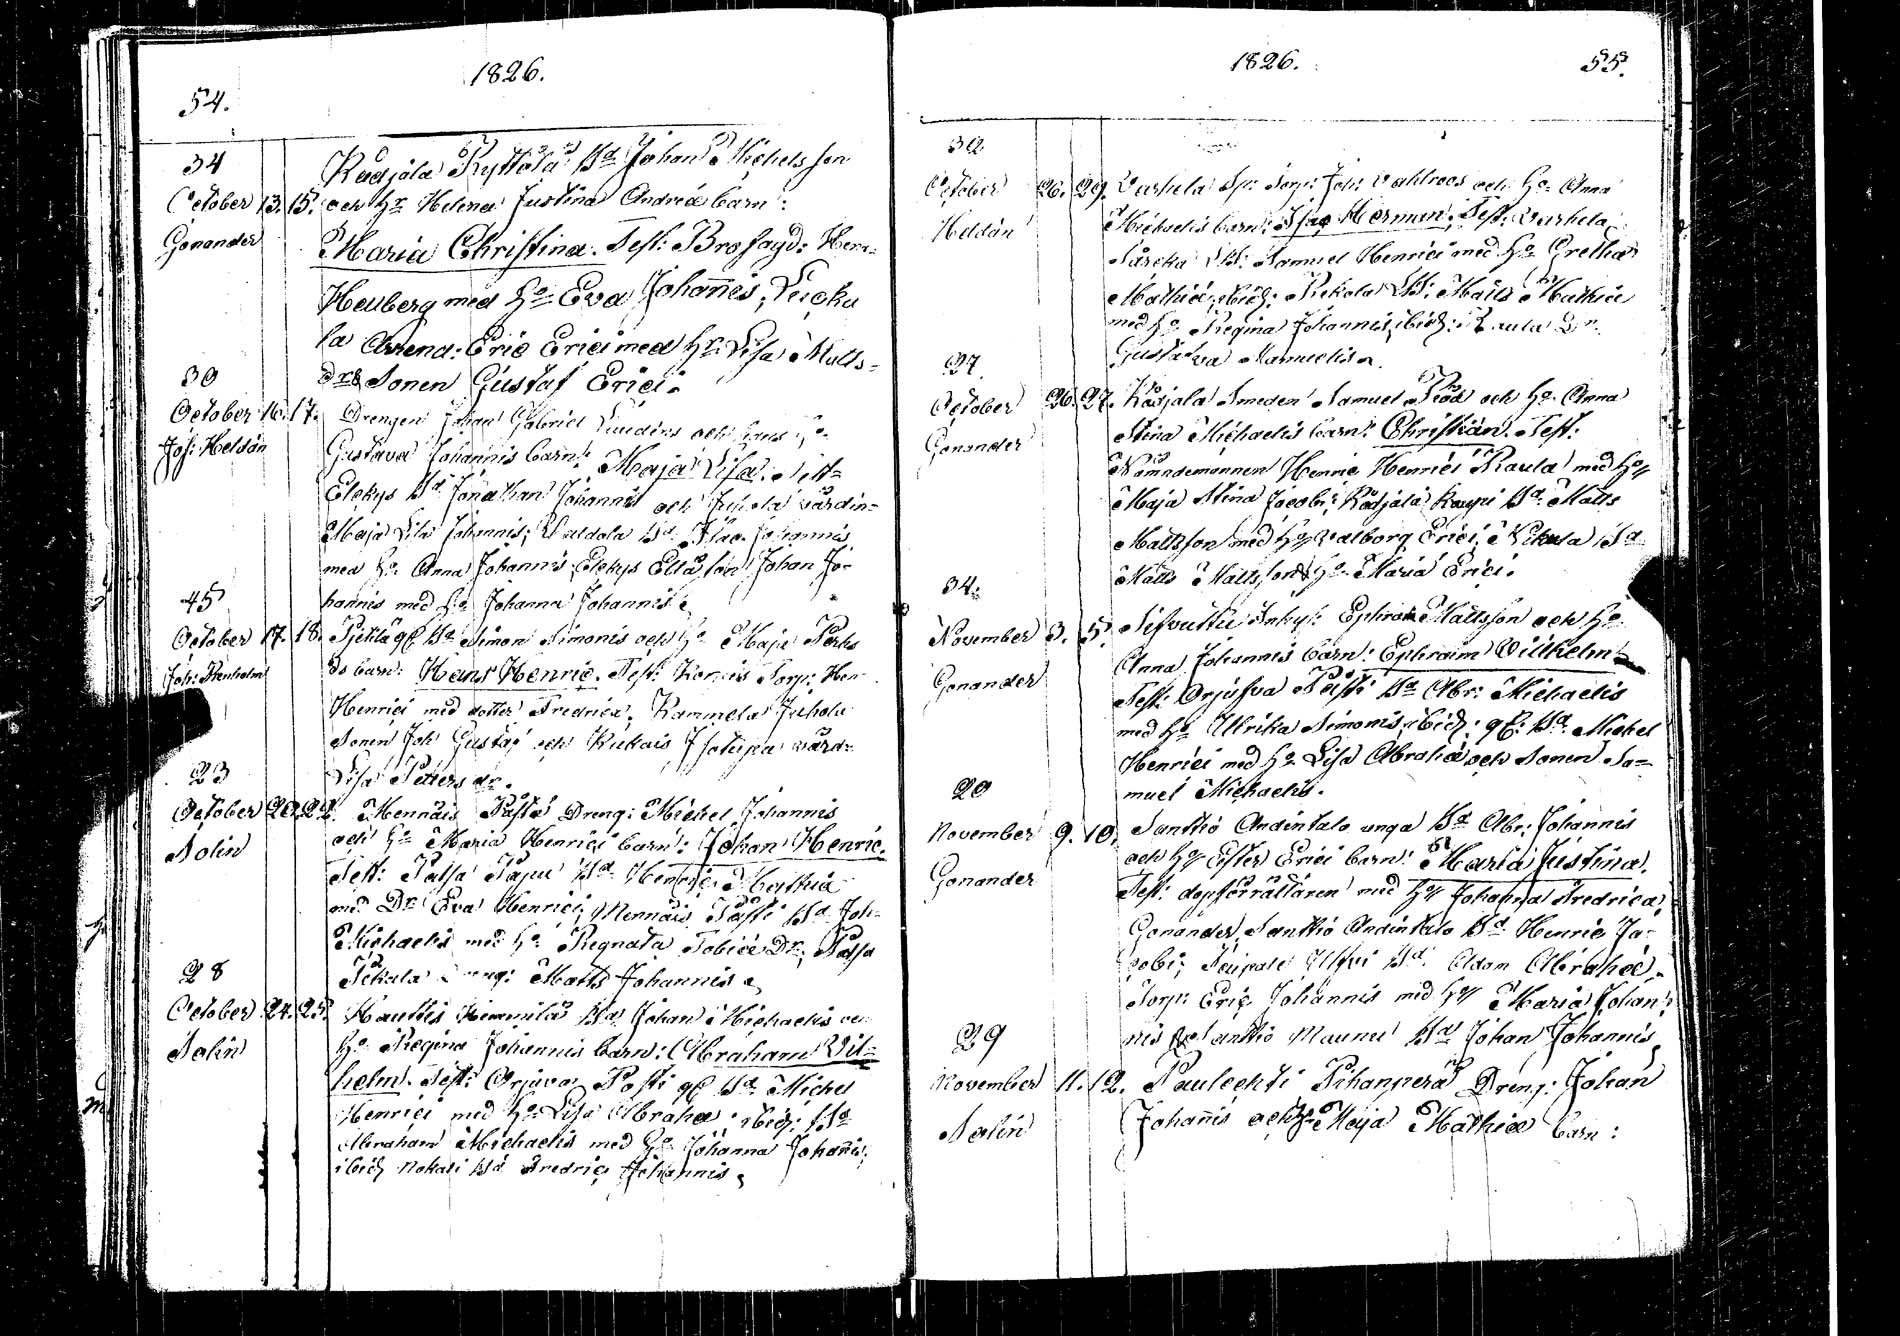 1826.
54.
34
October 13. 15.
Gonander
Kadjala Kyttälä Bd Johan Michelsson
och Hr Helena Justina Andreæ barn:
Maria Christina. Test: Brofogd: Hen-
Hellberg med Ho Eva Johañis,
la Arrend: Eric Erici med Hr: Lisa Matts-
dr & Sonen Gustaf Erici.
30
October 16. 17.
Joh: Heldán
Drengen Johan Gabriel och hans Ho
Gustava Johannis barn: Maja Lisa. Test-
Elekys Bd Jonathan Johannis och värdin-
Maja Lisa Johannis; Bd Isac Johannis
med Ho Anna Johannis, Elekys Johan Jo-
hannis med Ho Johanna Johannis.
45
October 17. 18.
Joh: Stenholm
qf Bd Simon Simonis och Ho Maja
barn: Hans Henric. Test: Torp: Hen
Henrici med dotter Fredrica. Kammela Juhola
Sonen Joh Gustaf och Isotupa värd-
Lisa Petters dr.
23
October 20. 22.
Solin
Mennäis Dreng: Michel Johannis
och Ho Maria Henrici barn: Johan Henric.
Test: Palsa Bd Henric Mathiæ
med Dr Eva Henrici, Mennäis Påsti Bd Joh-
Michaelis med Ho Regnata Tobiæ Dr,
Dreng: Matts Johannis
28
October 24. 25.
Solin
Hautis Bd Johan Michaelis och
Ho Regina Johannis barn: Abraham Vil-
helm. Test: Orjuva Påsti qf Bd Michel
Henrici med Ho Lisa Abrahæ; ibid: Bd
Abraham Michaelis med Ho Johanna Johañis;
ibid Bd Fredric Johannis
1826.
55.
32
October 26. 29.
Heldán
Varhela Sp: Torp: Joh: Vahlroos och Ho Anna
Michaelis barn: Isac Herman, Test: Varhela
Bd: Samuel Henrici med Ho Gretha
Mathiæ, ibid: Bd: Matts Mathiæ
med Ho Regina Johannis, ibid: Raula Dr
Gustava Manuelis.
27
October 26. 27.
Gonander
Kådjala Smeden Samuel och Ho Anna
Stina Michaelis barn: Christian. Test:
Nämndemannen Henric Henrici Raula med Ho
Maja Stina Jacobi; Kådjala Kaupi Bd Matts
Mattsson med Ho Valborg Erici, Bd
Matts Mattsson & Ho Maria Erici.
34.
November 3. 5.
Gonander
Inhys: Ephraim Mattsson och Ho
Anna Johannis barn: Ephraim Villhelm
Test: Orjusva Påsti Bd Abr: Michaelis
med Ho Ulrika Simonis, ibid: qf: Bd: Michel
Henrici med Ho Lisa Abrahæ och Sonen Sa-
muel Michaelis.
20
November 9. 10.
Gonander
Santtiò Andintalo unga Bd Abr: Johannis
och Ho Ester Erici barn: Maria Justina.
Test: dopförrättaren med Ho Johanna Fredrica
Gonander, Santtiò Andintalo Bd Henric Ja-
cobi; Bd Adam Abrahæ,
Torp: Eric Johannis med Ho Maria Johan-
nis & Santtiò Maunu Bd Johan Johannis
29
November 11. 12.
Solin
Paulechti Pihanperä Dreng: Johan
Johañis och Ho Maja Mathiæ barn: